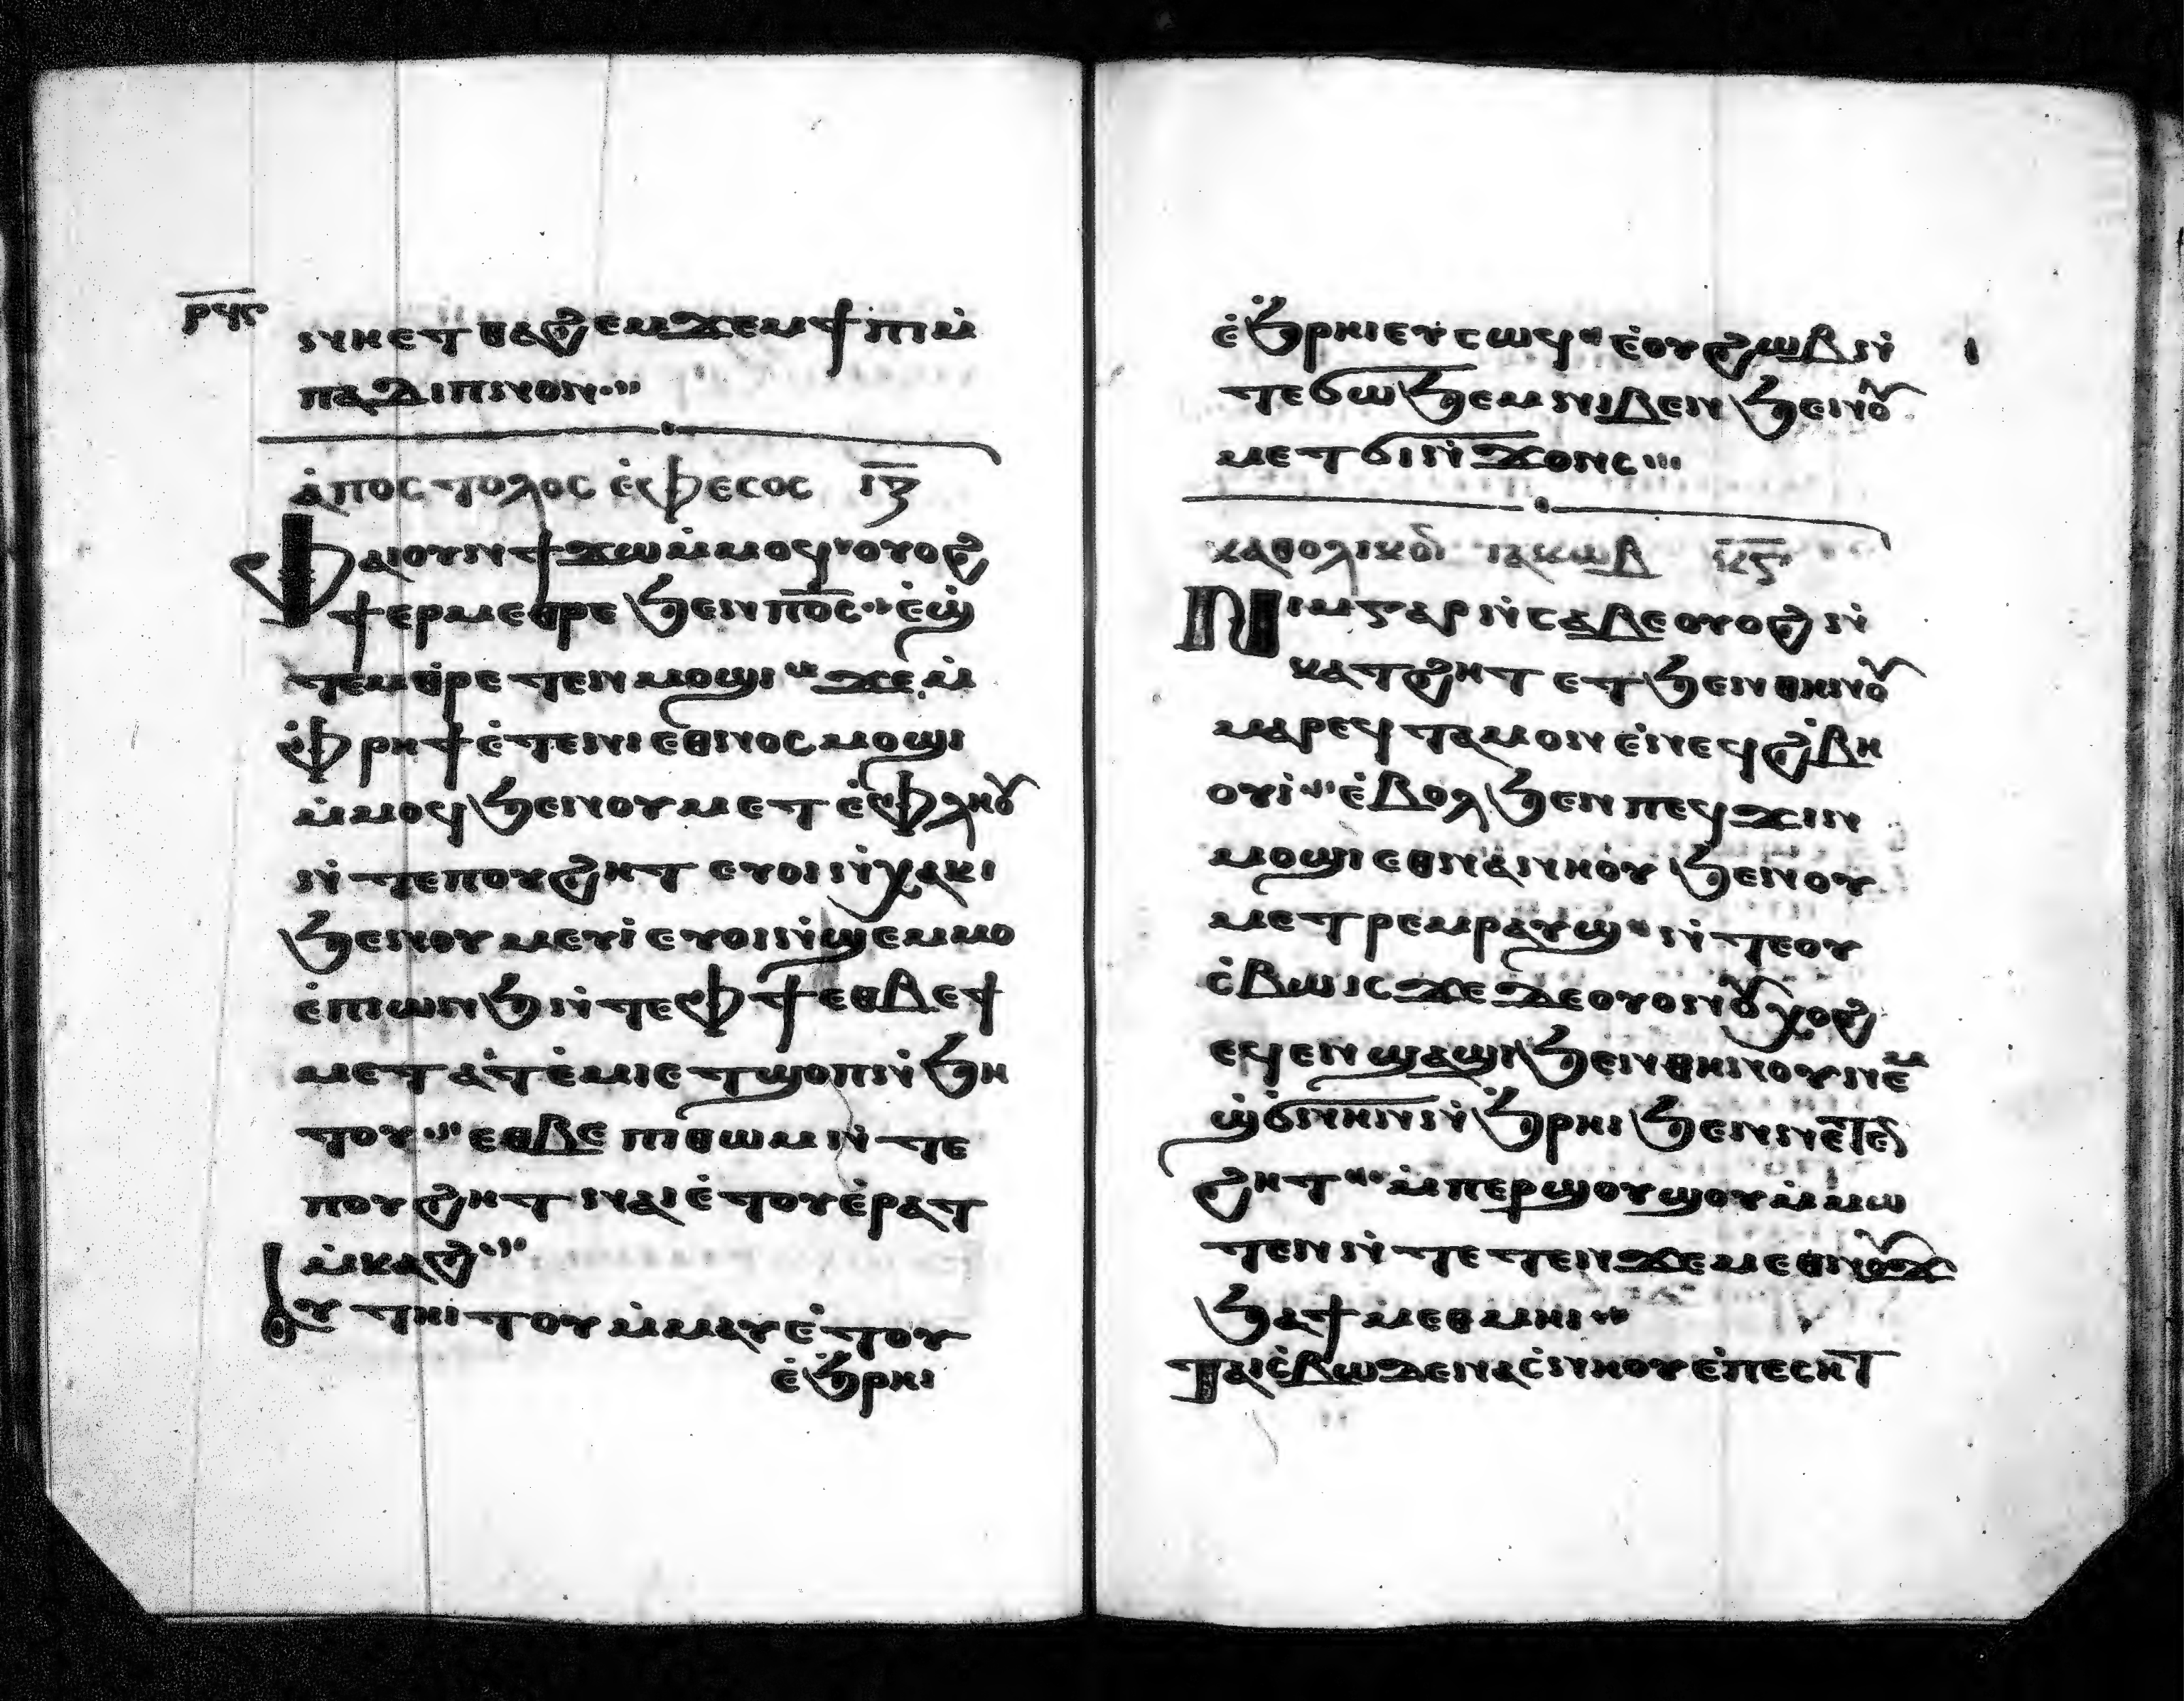 ⲣϥⲋ
ⲛⲏⲉⲧⲑⲁϩⲉⲙ ϫⲉⲙϯⲡⲓ ⲙ̇
ⲡⲁⲇⲓⲡⲛⲟⲛ
ⲁ̇ⲡⲟⲥⲧⲟⲗⲟⲥ ⲉ̇ⲫⲉⲥⲟⲥ ⲓ̅ⲍ̅
Ⲫⲁⲓ ⲟⲩⲛ ϯϫⲱ ⲙ̇ⲙⲟϥ ⲟⲩⲟϩ
ϯⲉⲣⲙⲉⲑⲣⲉ ϧⲉⲛ ⲡⲟ̅ⲥ̅ ⲉ̇ϣ̇
ⲧⲉⲙⲑⲣⲉⲧⲉⲛⲙⲟϣⲓ ϫⲉ ⲙ̇
ⲫ̇ⲣⲏϯ ⲉ̇ⲧⲉ ⲛⲓⲉⲑⲛⲟⲥ ⲙⲟϣⲓ
ⲙ̇ⲙⲟϥ ϧⲉⲛ ⲟⲩⲙⲉⲧⲉ̇ⲫⲗⲏⲟⲩ
ⲛ̇ⲧⲉ ⲡⲟⲩϩⲏⲧ ⲉⲩⲟⲓ ⲛ̇ⲭⲁⲕⲓ
ϧⲉⲛ ⲟⲩⲙⲉⲩⲓ̇ ⲉⲩⲟⲓ ⲛ̇ϣⲉⲙⲙⲟ
ⲉ̇ⲡⲱⲛϧ ⲛ̇ⲧⲉ ⲫϯ ⲉⲑⲃⲉ ϯ
ⲙⲉⲧⲁⲧⲉ̇ⲙⲓ ⲉⲧϣⲟⲡ ⲛ̇ϧⲏ
ⲧⲟⲩ ⲉⲑⲃⲉ ⲡⲓⲑⲱⲙ ⲛ̇ⲧⲉ
ⲡⲟⲩϩⲏⲧ ⲛⲁⲓ ⲉ̇ⲧⲟⲩⲉ̇ⲣⲁⲧ
ⲙ̇ⲕⲁϩ
Ⲟⲩ ⲧⲏⲓⲧⲟⲩ ⲙ̇ⲙⲁⲩ ⲉ̇ⲧⲟⲩ
ⲉ̇ϧ̇ⲣⲏⲓ
ⲉ̇ϧ̇ⲣⲏⲓ ⲉⲩⲥⲱϥ ⲉ̇ⲟⲩϩⲱⲃ ⲛ̇
ⲧⲉ ϭⲱϧⲉⲙ ⲛⲓⲃⲉⲛ ϧⲉⲛ ⲟⲩ
ⲙⲉⲧϭⲓⲛ̇ϫⲟⲛⲥ
ⲕⲁⲑⲟⲗⲓⲕⲟⲛ ⲓⲁⲕⲱⲃ ⲕ̅ⲋ̅
Ⲛⲓⲙ ⲅⲁⲣ ⲛ̇ⲥⲁⲃⲉ ⲟⲩⲟϩ ⲛ̇
ⲕⲁⲧϩⲏⲧ ⲉⲧϧⲉⲛ ⲑⲏⲛⲟⲩ
ⲙⲁⲣⲉϥⲧⲁⲙⲟⲛ ⲉ̇ⲛⲉϥϩ̇ⲃⲏ
ⲟⲩⲓ̇ ⲉ̇ⲃⲟⲗ ϧⲉⲛ ⲡⲉϥϫⲓⲛ
ⲙⲟϣⲓ ⲉⲑⲛⲁⲛⲏⲟⲩ ϧⲉⲛ ⲟⲩ
ⲙⲉⲧⲣⲉⲙⲣⲁⲩϣ ⲛ̇ⲧⲉ ⲟⲩ
ⲥ̇ⲃⲱ ⲓⲥϫⲉ ⲇⲉ ⲟⲩⲟⲛ ⲟⲩⲭⲟϩ
ⲉϥⲉⲛϣⲁϣⲓ ϧⲉⲛ ⲑⲏⲛⲟⲩ ⲛⲉⲙ
ϣ̇ϭⲛⲏⲛ ⲛ̇ϧ̇ⲣⲏⲓ ϧⲉⲛ ⲛⲉⲧⲉⲛ
ϩⲏⲧ ⲙ̇ⲡⲉⲣϣⲟⲩϣⲟⲩ ⲙ̇ⲙⲱ
ⲧⲉⲛ ⲛ̇ⲧⲉⲧⲉⲛϫⲉ ⲙⲉⲑⲛⲟⲩϫ
ϧⲁ ϯⲙⲉⲑⲙⲏⲓ
Ⲧⲁⲓⲥ̇ⲃⲱ ⲇⲉ ⲛⲁⲥⲛⲏⲟⲩ ⲉ̇ⲡⲉⲥⲏⲧ